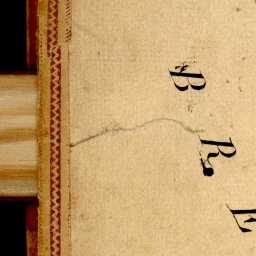 B
R
E